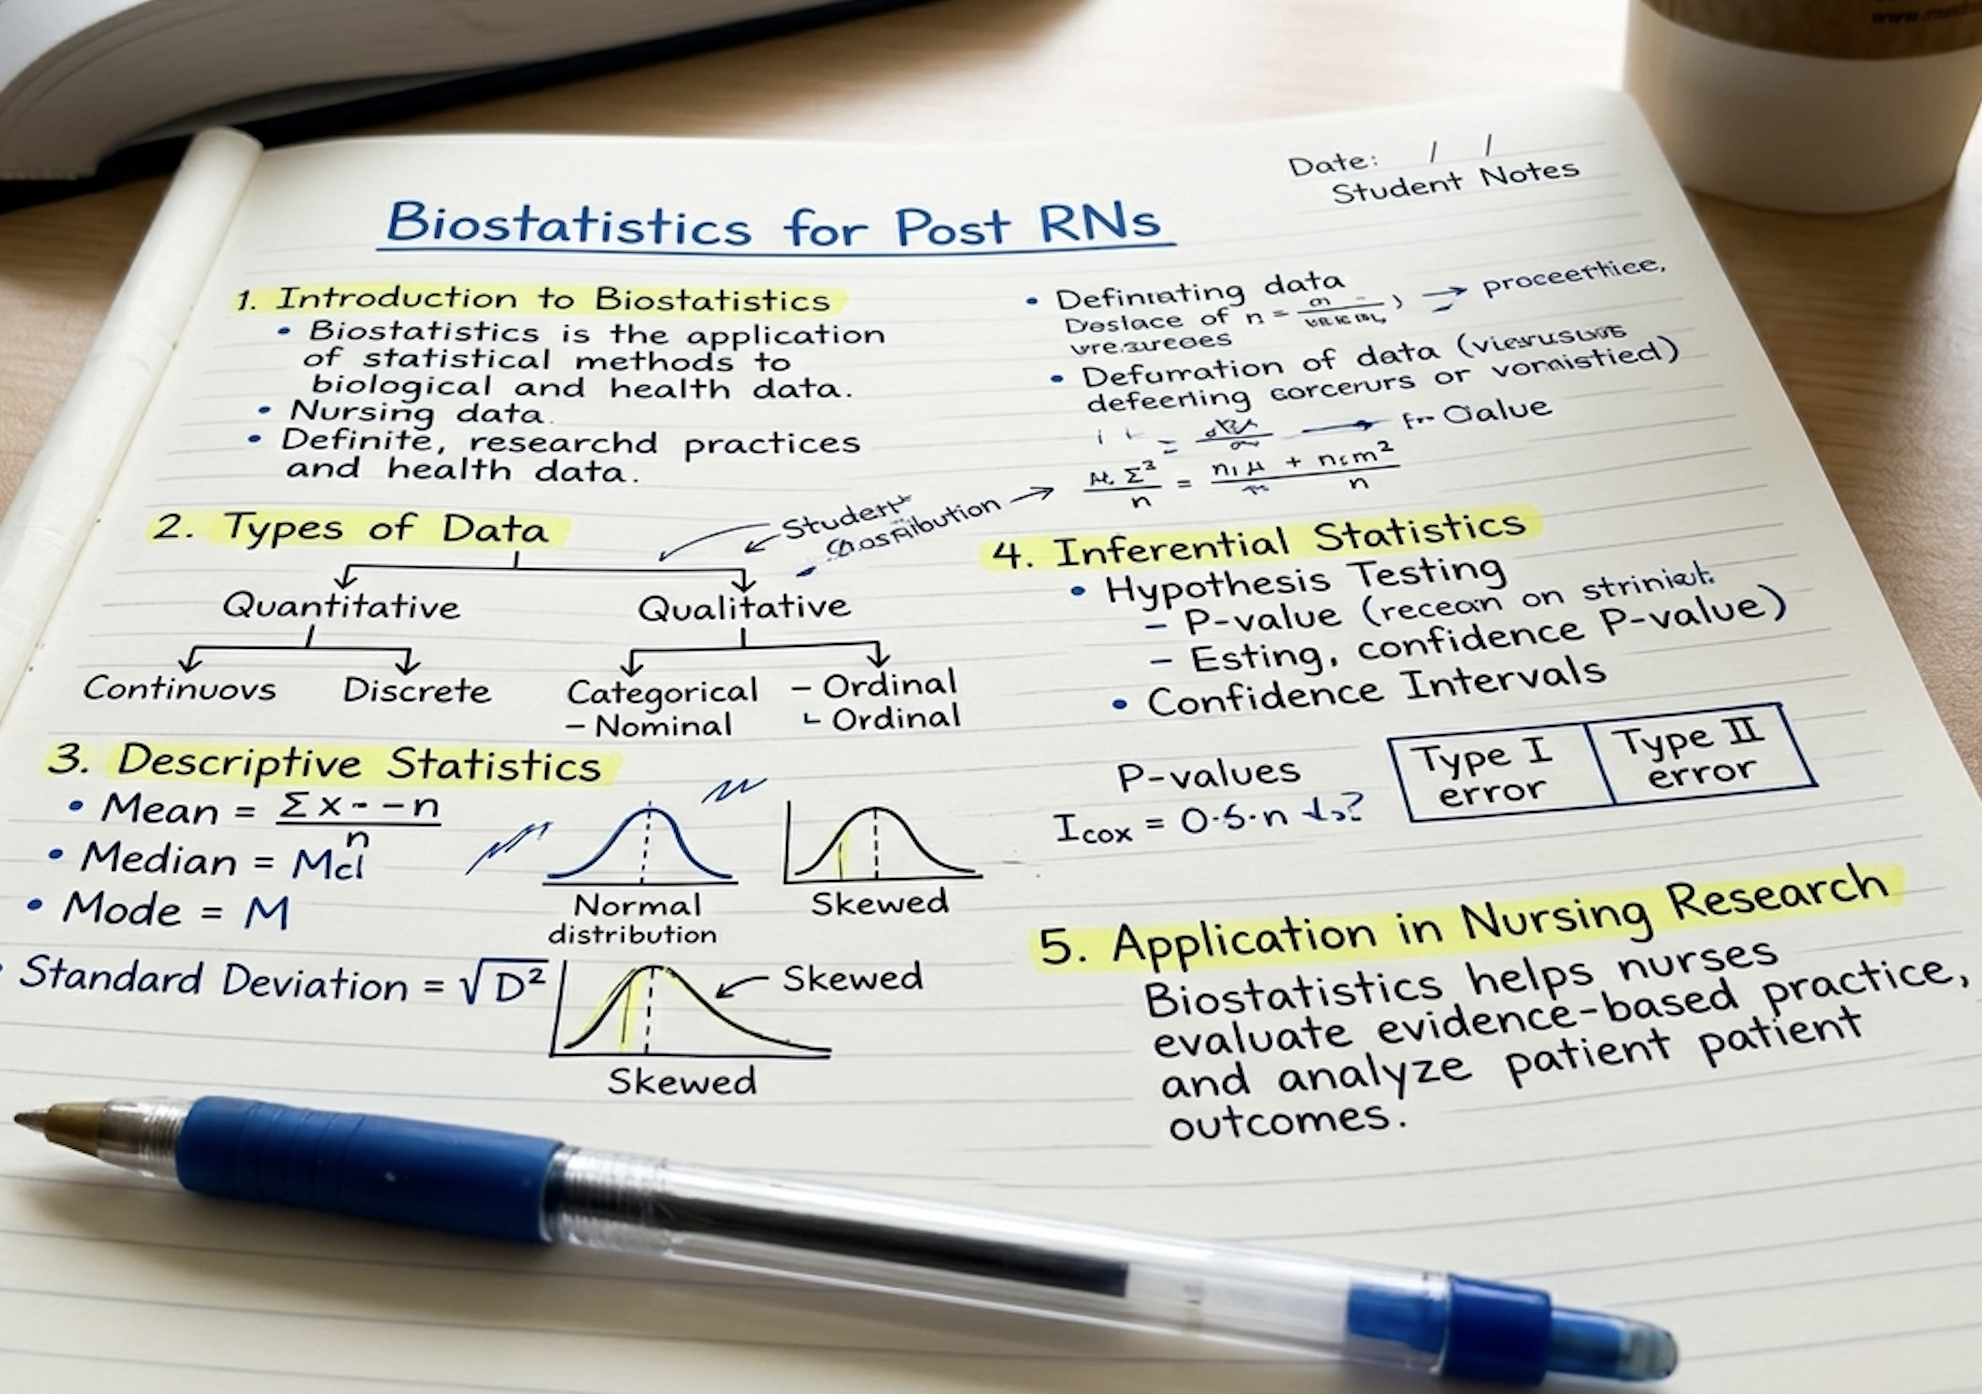 Date: / /
Student Notes
Biostatistics for Post RNs
1. Introduction to Biostatistics
• Biostatistics is the application
of statistical methods to
biological and health data.
• Nursing data.
• Definite, researchd practices
and health data.
2. Types of Data
Student
Quantitative
Qualitative
Continuovs
Discrete
Categorical
– Nominal
– Ordinal
Ordinal
3. Descriptive Statistics
• Mean = Σx - - n / n
• Median =
• Mode = M
Standard Deviation = √D²
Normal
distribution
Skewed
Skewed
Skewed
• data
of n =
• of data
defeerling or
= n
4. Inferential Statistics
• Hypothesis Testing
– P-value (recean on
– Esting, confidence P-value)
• Confidence Intervals
P-values
Icox = 0.5.n
Type I
error
Type II
error
5. Application in Nursing Research
Biostatistics helps nurses
evaluate evidence-based practice,
and analyze patient patient
outcomes.